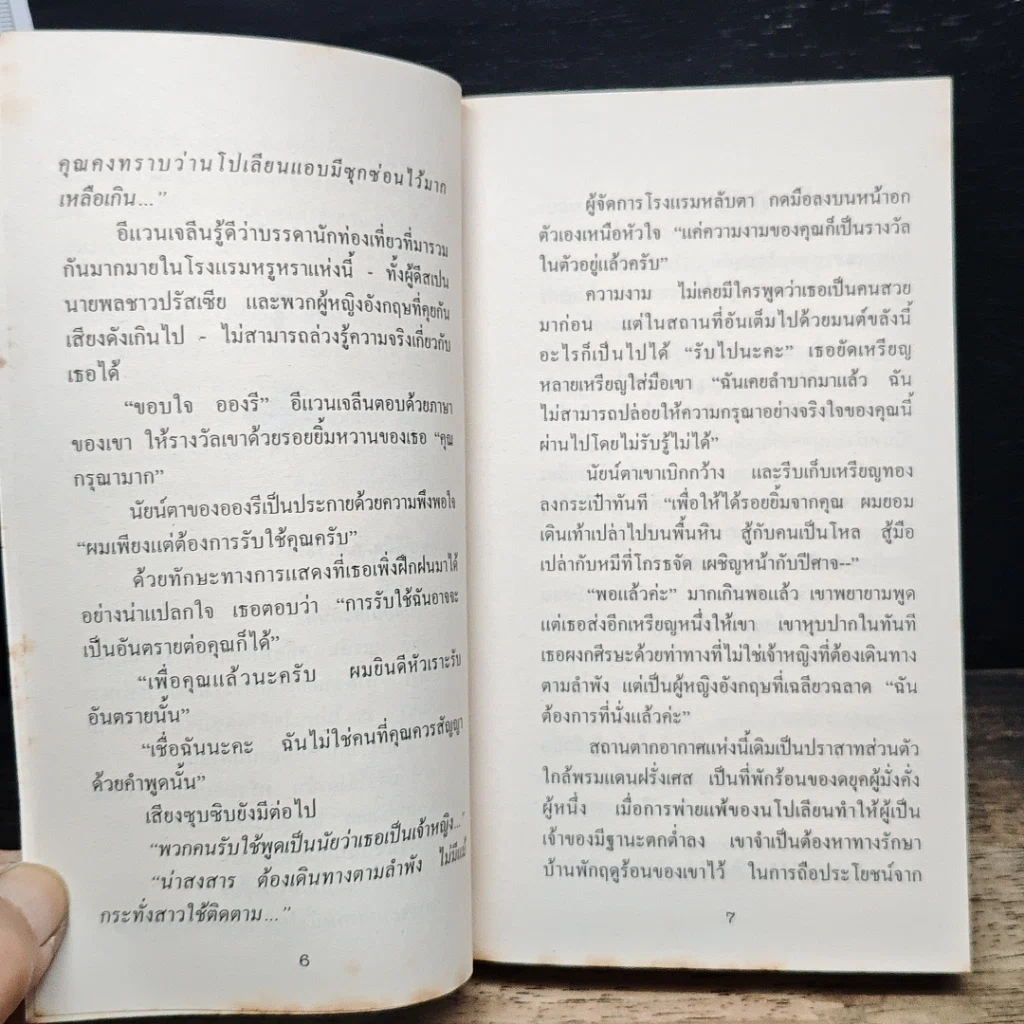 คุณคงทราบว่านโปเลียนแอบมีซุกซ่อนไว้มาก
เหลือเกิน...”
อีแวนเจลีนรู้ดีว่าบรรดานักท่องเที่ยวที่มารวม
กันมากมายในโรงแรมหรูหราแห่งนี้ - ทั้งผู้ดีสเปน
นายพลชาวปรัสเซีย และพวกผู้หญิงอังกฤษที่คุยกัน
เสียงดังเกินไป - ไม่สามารถล่วงรู้ความจริงเกี่ยวกับ
เธอได้
“ขอบใจ อองรี” อีแวนเจลีนตอบด้วยภาษา
ของเขา ให้รางวัลเขาด้วยรอยยิ้มหวานของเธอ “คุณ
กรุณามาก”
นัยน์ตาของอองรีเป็นประกายด้วยความพึงพอใจ
“ผมเพียงแต่ต้องการรับใช้คุณครับ”
ด้วยทักษะทางการแสดงที่เธอเพิ่งฝึกฝนมาได้
อย่างน่าแปลกใจ เธอตอบว่า “การรับใช้ฉันอาจจะ
เป็นอันตรายต่อคุณก็ได้”
“เพื่อคุณแล้วนะครับ ผมยินดีหัวเราะรับ
อันตรายนั้น”
“เชื่อฉันนะคะ ฉันไม่ใช่คนที่คุณควรสัญญา
ด้วยคำพูดนั้น”
เสียงซุบซิบยังมีต่อไป
“พวกคนรับใช้พูดเป็นนัยว่าเธอเป็นเจ้าหญิง...”
“น่าสงสาร ต้องเดินทางตามลำพัง ไม่มีแม้
กระทั่งสาวใช้ติดตาม...”
6
ผู้จัดการโรงแรมหลับตา กดมือลงบนหน้าอก
ตัวเองเหนือหัวใจ “แค่ความงามของคุณก็เป็นรางวัล
ในตัวอยู่แล้วครับ”
ความงาม ไม่เคยมีใครพูดว่าเธอเป็นคนสวย
มาก่อน แต่ในสถานที่อันเต็มไปด้วยมนต์ขลังนี้
อะไรก็เป็นไปได้ “รับไปนะคะ” เธอยัดเหรียญ
หลายเหรียญใส่มือเขา “ฉันเคยลำบากมาแล้ว ฉัน
ไม่สามารถปล่อยให้ความกรุณาอย่างจริงใจของคุณนี้
ผ่านไปโดยไม่รับรู้ไม่ได้”
นัยน์ตาเขาเบิกกว้าง และรีบเก็บเหรียญทอง
ลงกระเป๋าทันที “เพื่อให้ได้รอยยิ้มจากคุณ ผมยอม
เดินเท้าเปล่าไปบนพื้นหิน สู้กับคนเป็นโหล สู้มือ
เปล่ากับหมีที่โกรธจัด เผชิญหน้ากับปีศาจ--”
“พอแล้วค่ะ” มากเกินพอแล้ว เขาพยายามพูด
แต่เธอส่งอีกเหรียญหนึ่งให้เขา เขาหุบปากในทันที
เธอผงกศีรษะด้วยท่าทางที่ไม่ใช่เจ้าหญิงที่ต้องเดินทาง
ตามลำพัง แต่เป็นผู้หญิงอังกฤษที่เฉลียวฉลาด “ฉัน
ต้องการที่นั่งแล้วค่ะ”
สถานตากอากาศแห่งนี้เดิมเป็นปราสาทส่วนตัว
ใกล้พรมแดนฝรั่งเศส เป็นที่พักร้อนของดยุคผู้มั่งคั่ง
ผู้หนึ่ง เมื่อการพ่ายแพ้ของนโปเลียนทำให้ผู้เป็น
เจ้าของมีฐานะตกต่ำลง เขาจำเป็นต้องหาทางรักษา
บ้านพักฤดูร้อนของเขาไว้ ในการถือประโยชน์จาก
7